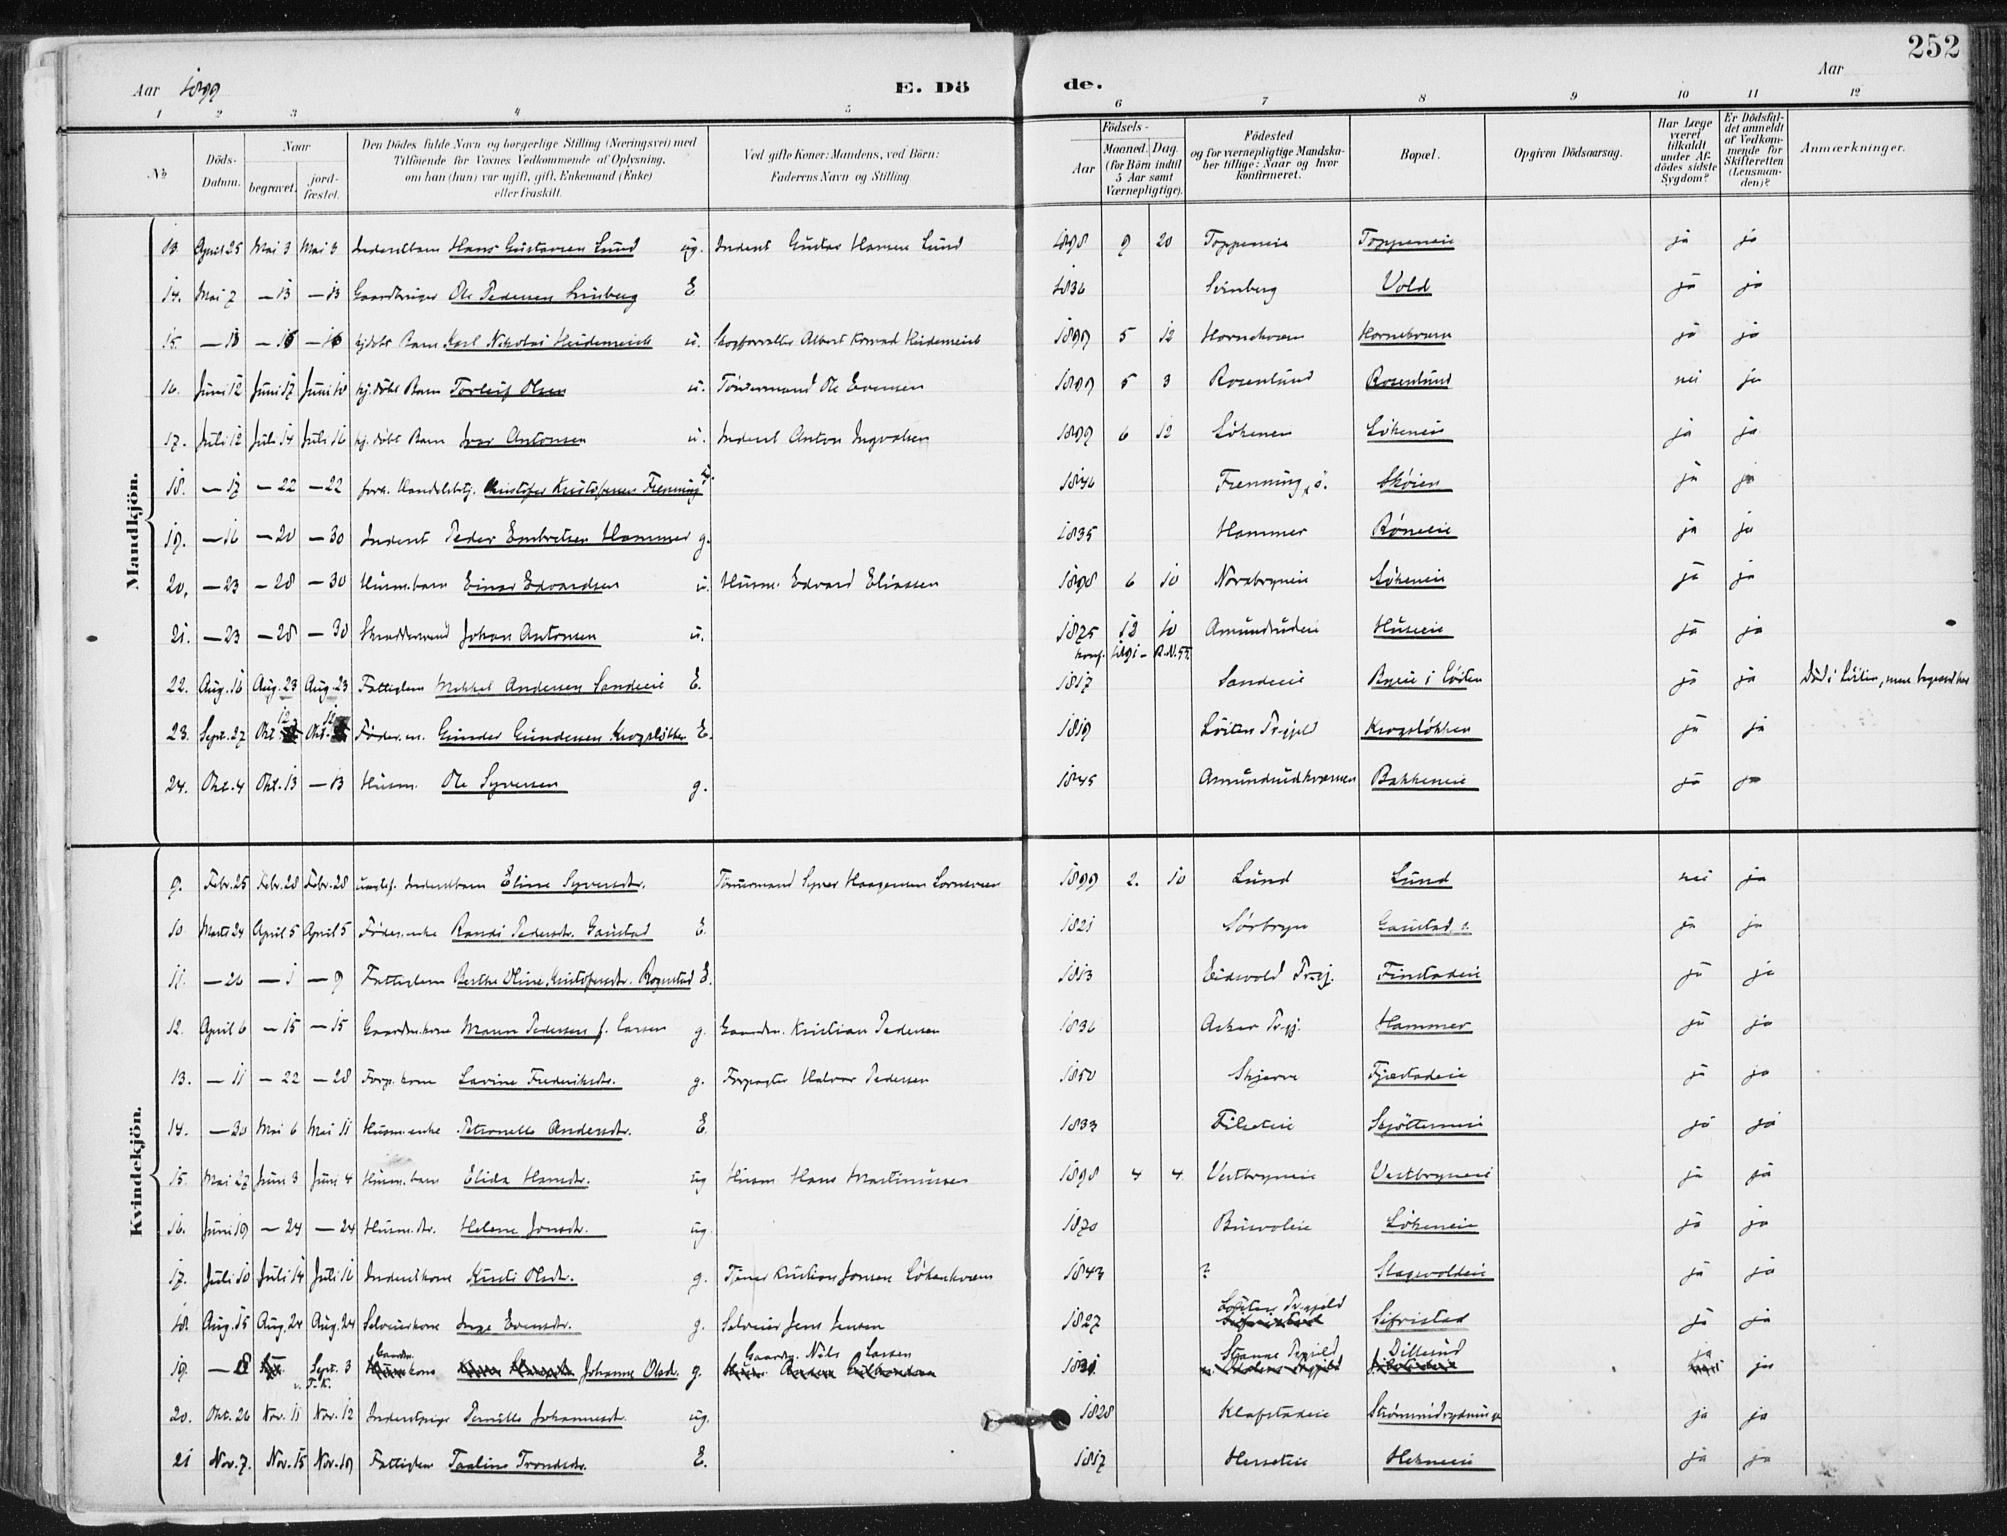 252
Aar 1899 E. Dö de. Aar
1 2 3 4 5 6 7 8 9 10 11 12
No Döds-Datum. Naar begravet. jord-fæstet. Den Dödes fulde Navn og borgerlige Stilling (Næringsvei) med Tilföiende for Voxnes Vedkommende af Oplysning, om han (hun) var ugift, gift, Enkemand (Enke) eller fraskilt. Ved gifte Koner: Mandens, ved Börn: Faderens Navn og Stilling Födsels- Aar Maaned. Dag. (for Börn indtil 5 Aar samt Værnepligtige). Födested og for værnepligtige Mandskaber tillige: Naar og hvor konfirmeret. Bopæl. Opgiven Dödsaarsag. Har Læge været tilkaldt under Afdödes sidste Sygdom? Er Dödsfaldet anmeldt af Vedkommende for Skifteretten (Lensmanden)? Anmærkninger.
Mandkjön.
13. April 25 Mai 3 Mai 3 Inderstbarn Hans Gustavsen Lund ug. Inderst Gustav Hansen Lund 1898 9 20 Toppeneie Toppeneie ja ja
14. Mai 7 – 13 – 13 Gaardbruger Ole Pedersen Svinberg E 1836 Svinberg Vold ja ja
15. – 13 – 16 – 16 hjdøbt Barn Karl Nikolai Heidenreich u. Skogforvalter Albert Konrad Heidenreich 1899 5 12 Hornekvern Hornekvern ja ja
16. Juni 12 Juni 17 Juni 18 hj. døbt Barn Torleif Olsen u. Tömmermand Ole Evensen 1899 5 3 Rosenlund Rosenlund nei ja
17. Juli 12 Juli 14 Juli 16 hj. døbt Barn Ivar Antonsen u. Inderst Anton Ingvalsen 1899 6 12 Løkenen Løkeneie ja ja
18. – 17 – 22 – 22 forh. Handelsbetj. Kristofer Kristofersen Frenning u. 1846 Frenning, ö. Skøien ja ja
19. – 16 – 20 – 30 Inderst Peder Embretsen Hammer g. 1835 Hammer Röneeie ja ja
20. – 23 – 28 – 30 Husm.barn Einar Edvardsen u. Husm. Edvard Eliassen 1898 6 10 Norabryneie Løkeneie ja ja
21. – 23 – 28 – 30 Skræddersvend Johan Antonsen u. 1875 12 10 Amundrudeie Huseeie ja ja
konf. 1891 – R. N. 55.
22. Aug. 16 Aug. 23 Aug. 23 Fattiglem Mikkel Andersen Sandeeie E. 1817 Sandeeie Byeie i Løiten ja ja Död i Löiten, men begravet her
23. Sept. 27 Okt. 12 Okt. 12 Føder.m. Gunder Gundersen Krogsløkken E. 1819 Løiten Pr.gjeld Krogsløkken ja ja
24. Okt. 4 Okt. 13 – 13 Husm. Ole Syversen g. 1845 Amundrudkvernen Bakkeneie ja ja
Kvindekjön.
9. Febr. 25 Febr. 28 Febr. 28 Inderstbarn Eline Syversdtr. Tömmermand Syver Haagensen 1899 2. 10 Lund Lund nei ja
10 Marts 24 April 5 April 5 Föder.enke Randi Pedersdtr. Gaustad E. 1821 Sørbryn Gaustad, ja ja
11. – 26 – 1 – 9 Fattiglem Berthe Oline Kristofersdtr. Rognstad E. 1813 Eidsvold Pr.gj. Finstadeie ja ja
12. April 6 – 15 – 15 Gaardm.kone Maren Pedersen f. Larsen g. Gaardm. Kristian Pedersen 1836 Asker Pr.gj. Hammer ja ja
13. – 11 – 22 – 28 Forp. kone Lavine Frederiksdtr. g. Forpagter Halvor Pedersen 1850 Skjerve Fjæstadeie ja ja
14. – 30 Mai 6 Mai 11 Husm.enke Petronelle Andersdtr. E. 1833 Filseteie Sjötterneie ja ja
15. Mai 27 Juni 3 Juni 4 Husm.barn Elida Hansdtr. ug Husm Hans Martiniussen 1898 4 4 Vestbryneie Vestbryneeie ja ja
16. Juni 19 – 24 – 24 Husm.dtr. Helene Jonsdtr. ug. 1870 Busvoleie Løkeneie ja ja
17. Juli 10 Juli 14 Juli 16 Inderstkone Kirsti Olsdtr. g. Tjener Kristian Jonsen Løkenkvern 1843 ? Slagsvoldeie ja ja
18. Aug. 15 Aug. 24 Aug. 24 Selveierkone Inge Evensdtr. g. Selveier Jens Jensen 1827 Løiten Pr.gjeld Sifristad ja ja
19. – 18 Sept. 3 Gaardm. kone Johanne Olsd. g. Gaardm. Nils Larsen Stange Pr.gjeld Dillerud ja ja
20. Okt. 26 Nov. 11 Nov. 12 Inderstpige Pernille Johannesdtr. ug. 1828 Klæfstadeie ja ja
21 Nov. 7. Nov. 15 Nov. 19 Fattiglem Taaline Trondsdtr. E. 1817 Herseteie Hekneeie ja ja